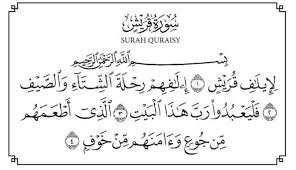 سُورَةُ قُرَيْشٍ
SURAH QURAISY
بِسْمِ اللَّهِ الرَّحْمَٰنِ الرَّحِيمِ
لِإِيلَٰفِ قُرَيْشٍ ۝١ إِۦلَٰفِهِمْ رِحْلَةَ ٱلشِّتَآءِ وَٱلصَّيْفِ
۝٢ فَلْيَعْبُدُوا۟ رَبَّ هَٰذَا ٱلْبَيْتِ ۝٣ ٱلَّذِىٓ أَطْعَمَهُم
مِّن جُوعٍ وَءَامَنَهُم مِّنْ خَوْفٍۭ ۝٤